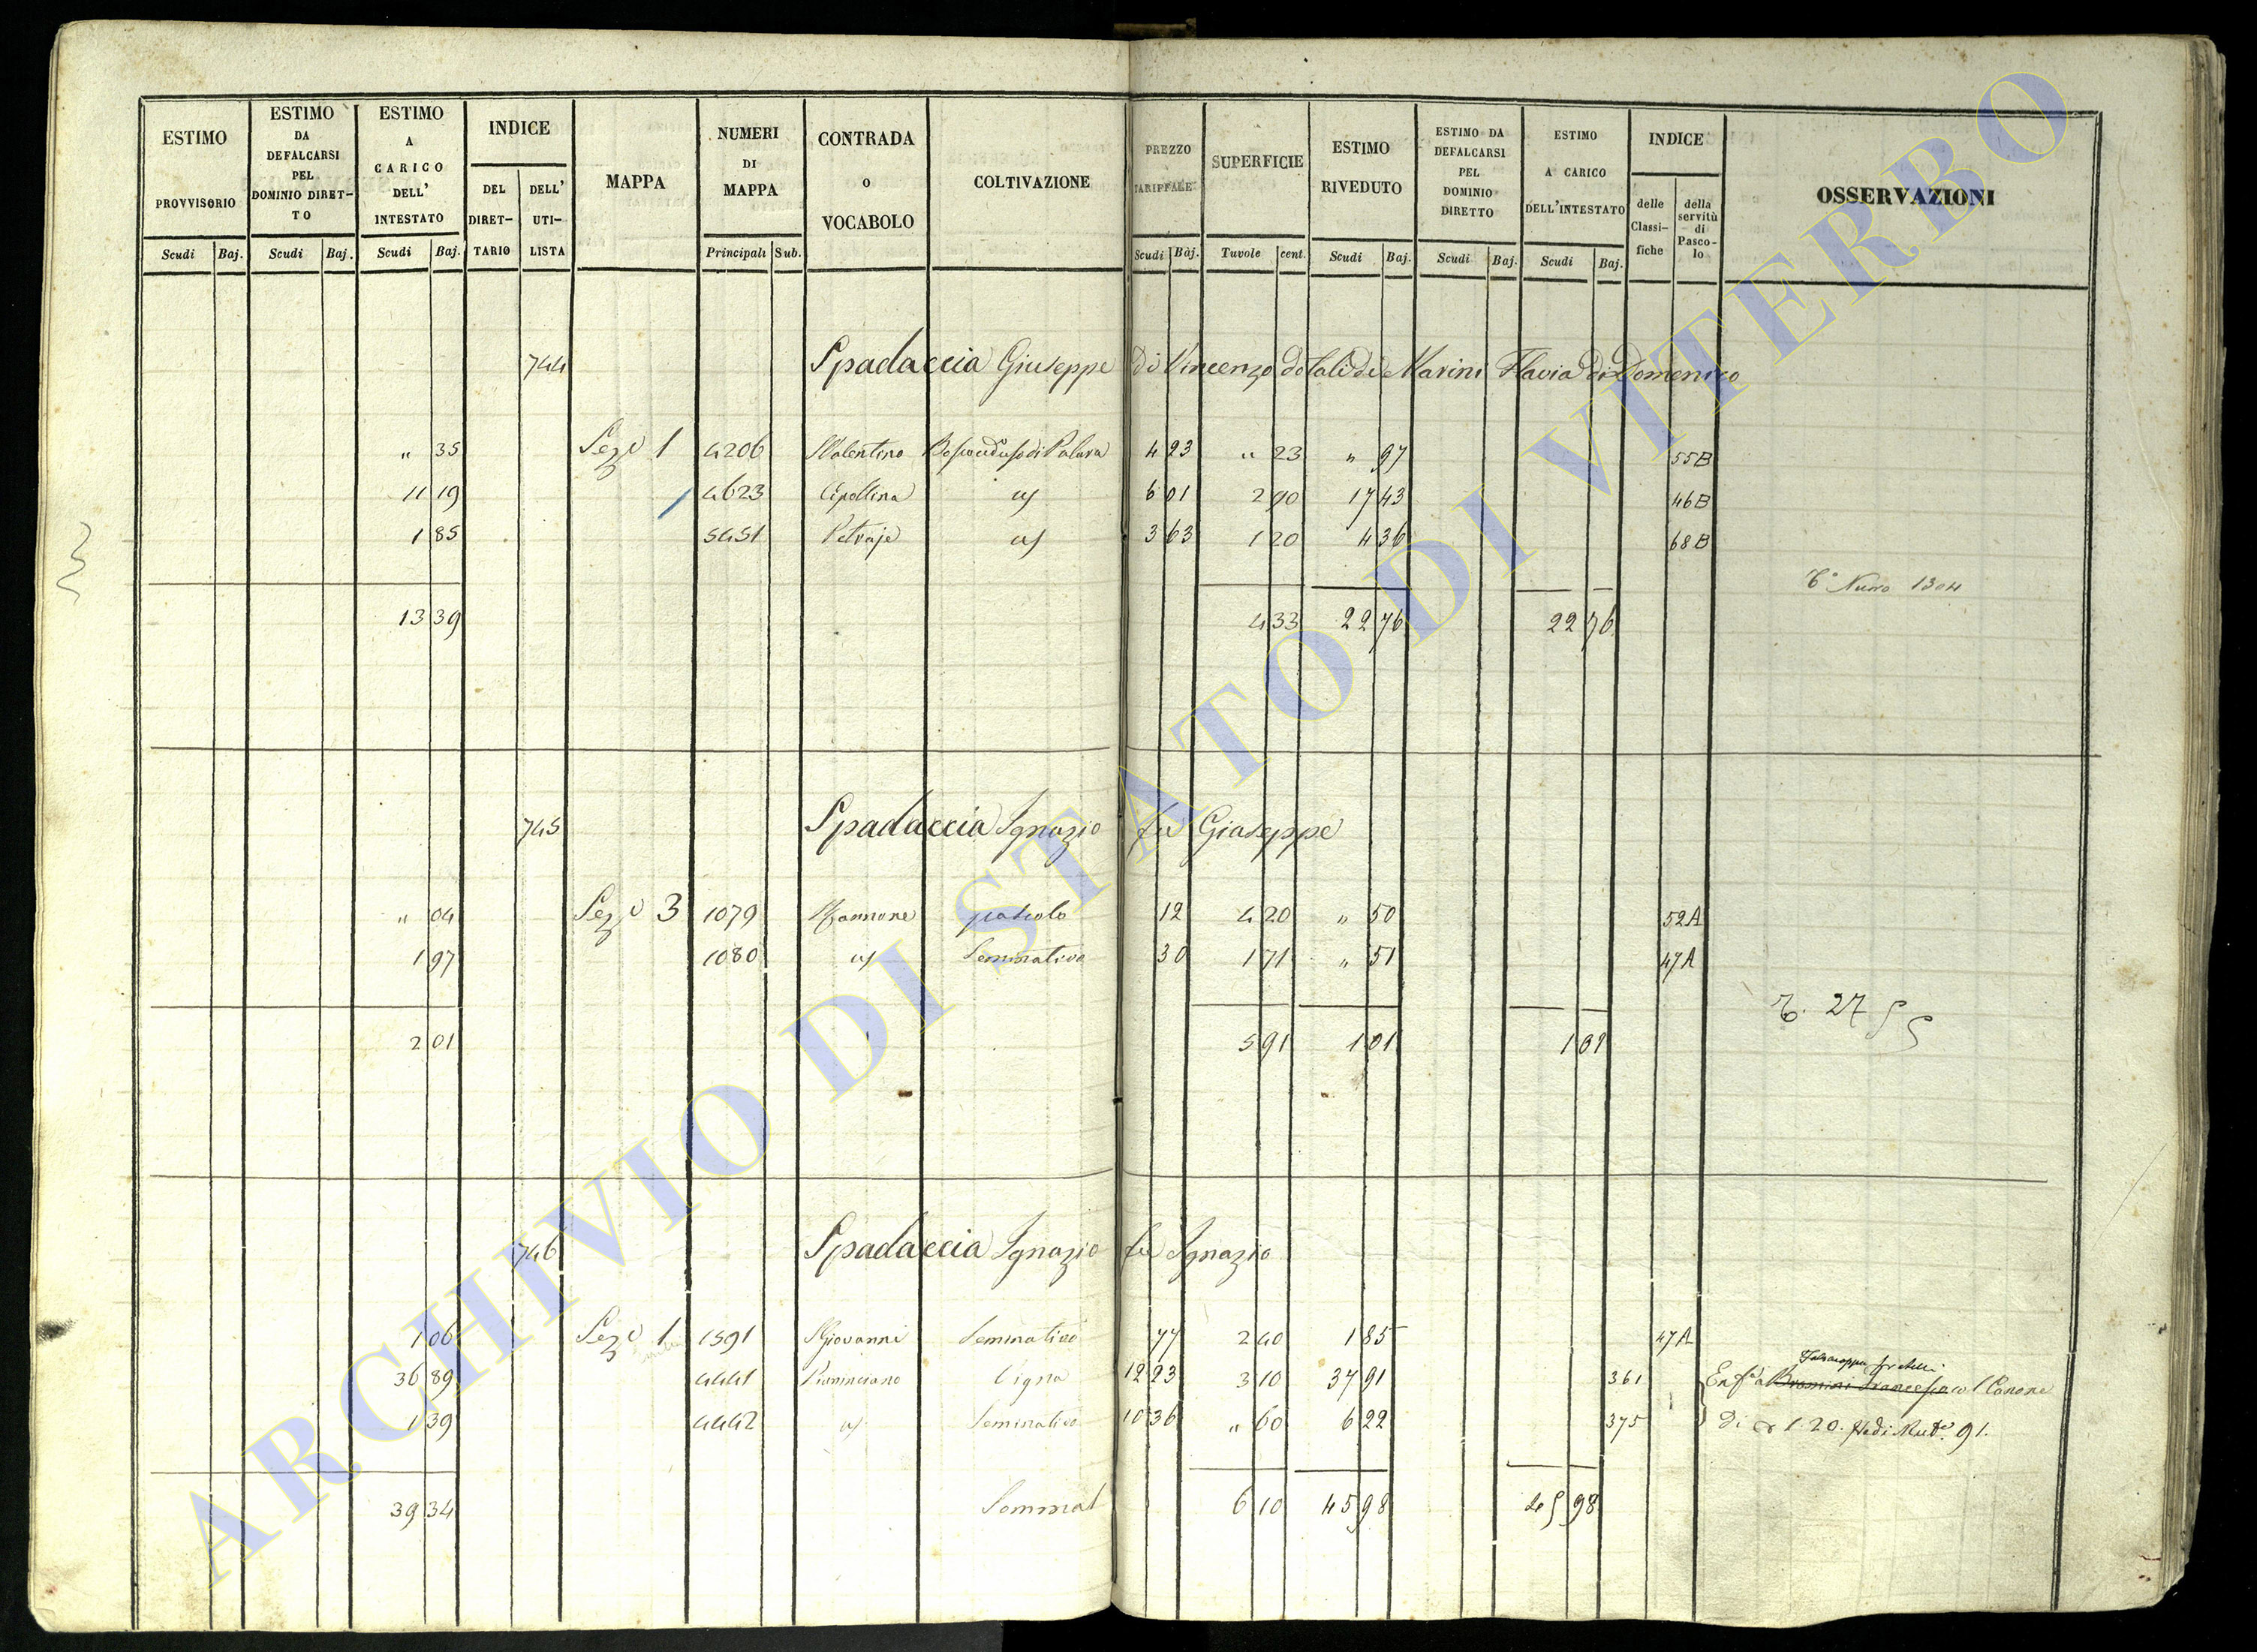 ESTIMO PROVVISORIO Scudi Baj.
ESTIMO DA DEFALCARSI PEL DOMINIO DIRETTO Scudi Baj.
ESTIMO A CARICO DELL' INTESTATO Scudi Baj.
INDICE DEL DIRETTARIO DELL' UTILISTA
MAPPA
NUMERI DI MAPPA Principali Sub.
CONTRADA O VOCABOLO
COLTIVAZIONE
PREZZO TARIFFALE Scudi Baj.
SUPERFICIE Tavole cent.
ESTIMO RIVEDUTO Scudi Baj.
ESTIMO DA DEFALCARSI PEL DOMINIO DIRETTO Scudi Baj.
ESTIMO A CARICO DELL'INTESTATO Scudi Baj.
INDICE delle Classifiche della servitù di Pascolo
OSSERVAZIONI
744 Spadaccia Giuseppe di Vincenzo dotali di Marini Flavia di Domenico
" 35 Sez e 1 4206 SValentino 4 23 " 23 " 97 55B
11 19 4623 Cipollina 6 01 2 90 17 43 46B
1 85 5451 Petraje 3 63 1 20 4 36 68B
1304
13 39 4 33 22 76 22 76
745 Spadaccia Ignazio fu Giuseppe
" 04 Sez e 3 1079 pascolo 12 4 20 " 50 52A
1 97 1080 Seminativo 30 1 71 " 51 47A
27
2 01 5 91 1 01 1 01
746 Spadaccia Ignazio fu Ignazio
1 06 Sez e 1 1591 SGiovanni Seminativo 77 2 40 1 85 47A
fratelli
36 89 4441 Vigna 12 23 3 10 37 91 361 Enf a Bromini Francesco col Canone
1 39 4442 Seminativo 10 36 " 60 6 22 375 di 1 20. 91.
39 34 Sommat 6 10 45 98 45 98
ARCHIVIO DI STATO DI VITERBO